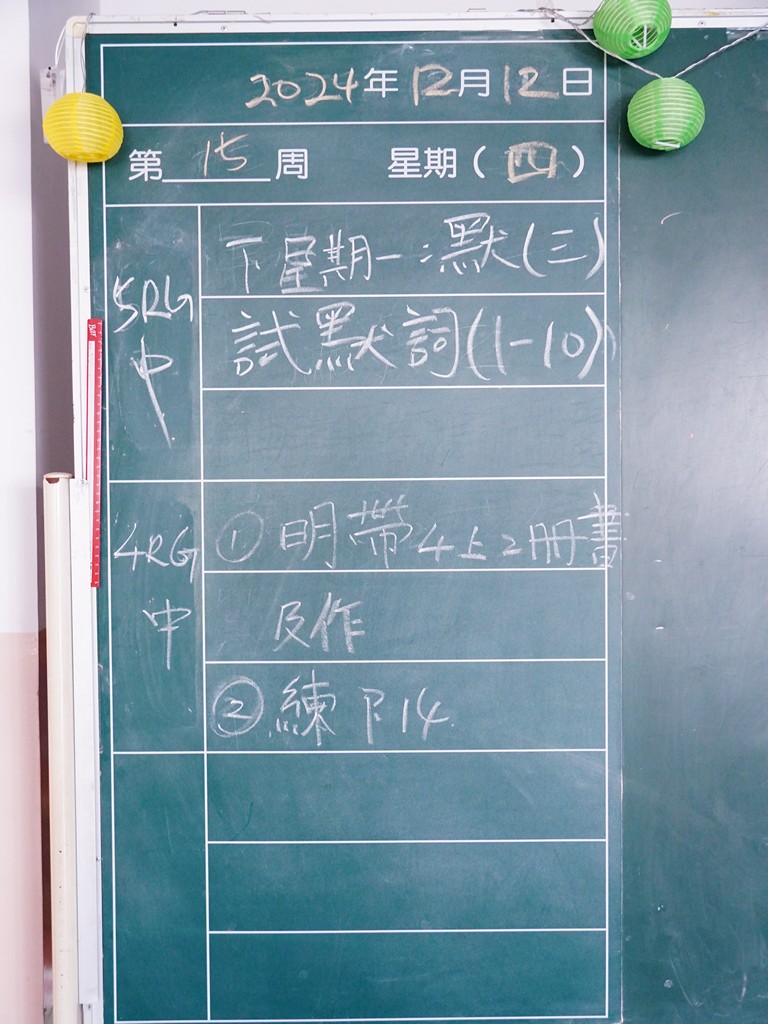 2024年12月12日
第 15 周 星期（四）
5RG
中
下星期一:默(三)
試默詞(1-10)
4RG
中
① 明帶4上2冊書
及作
② 練 P14.